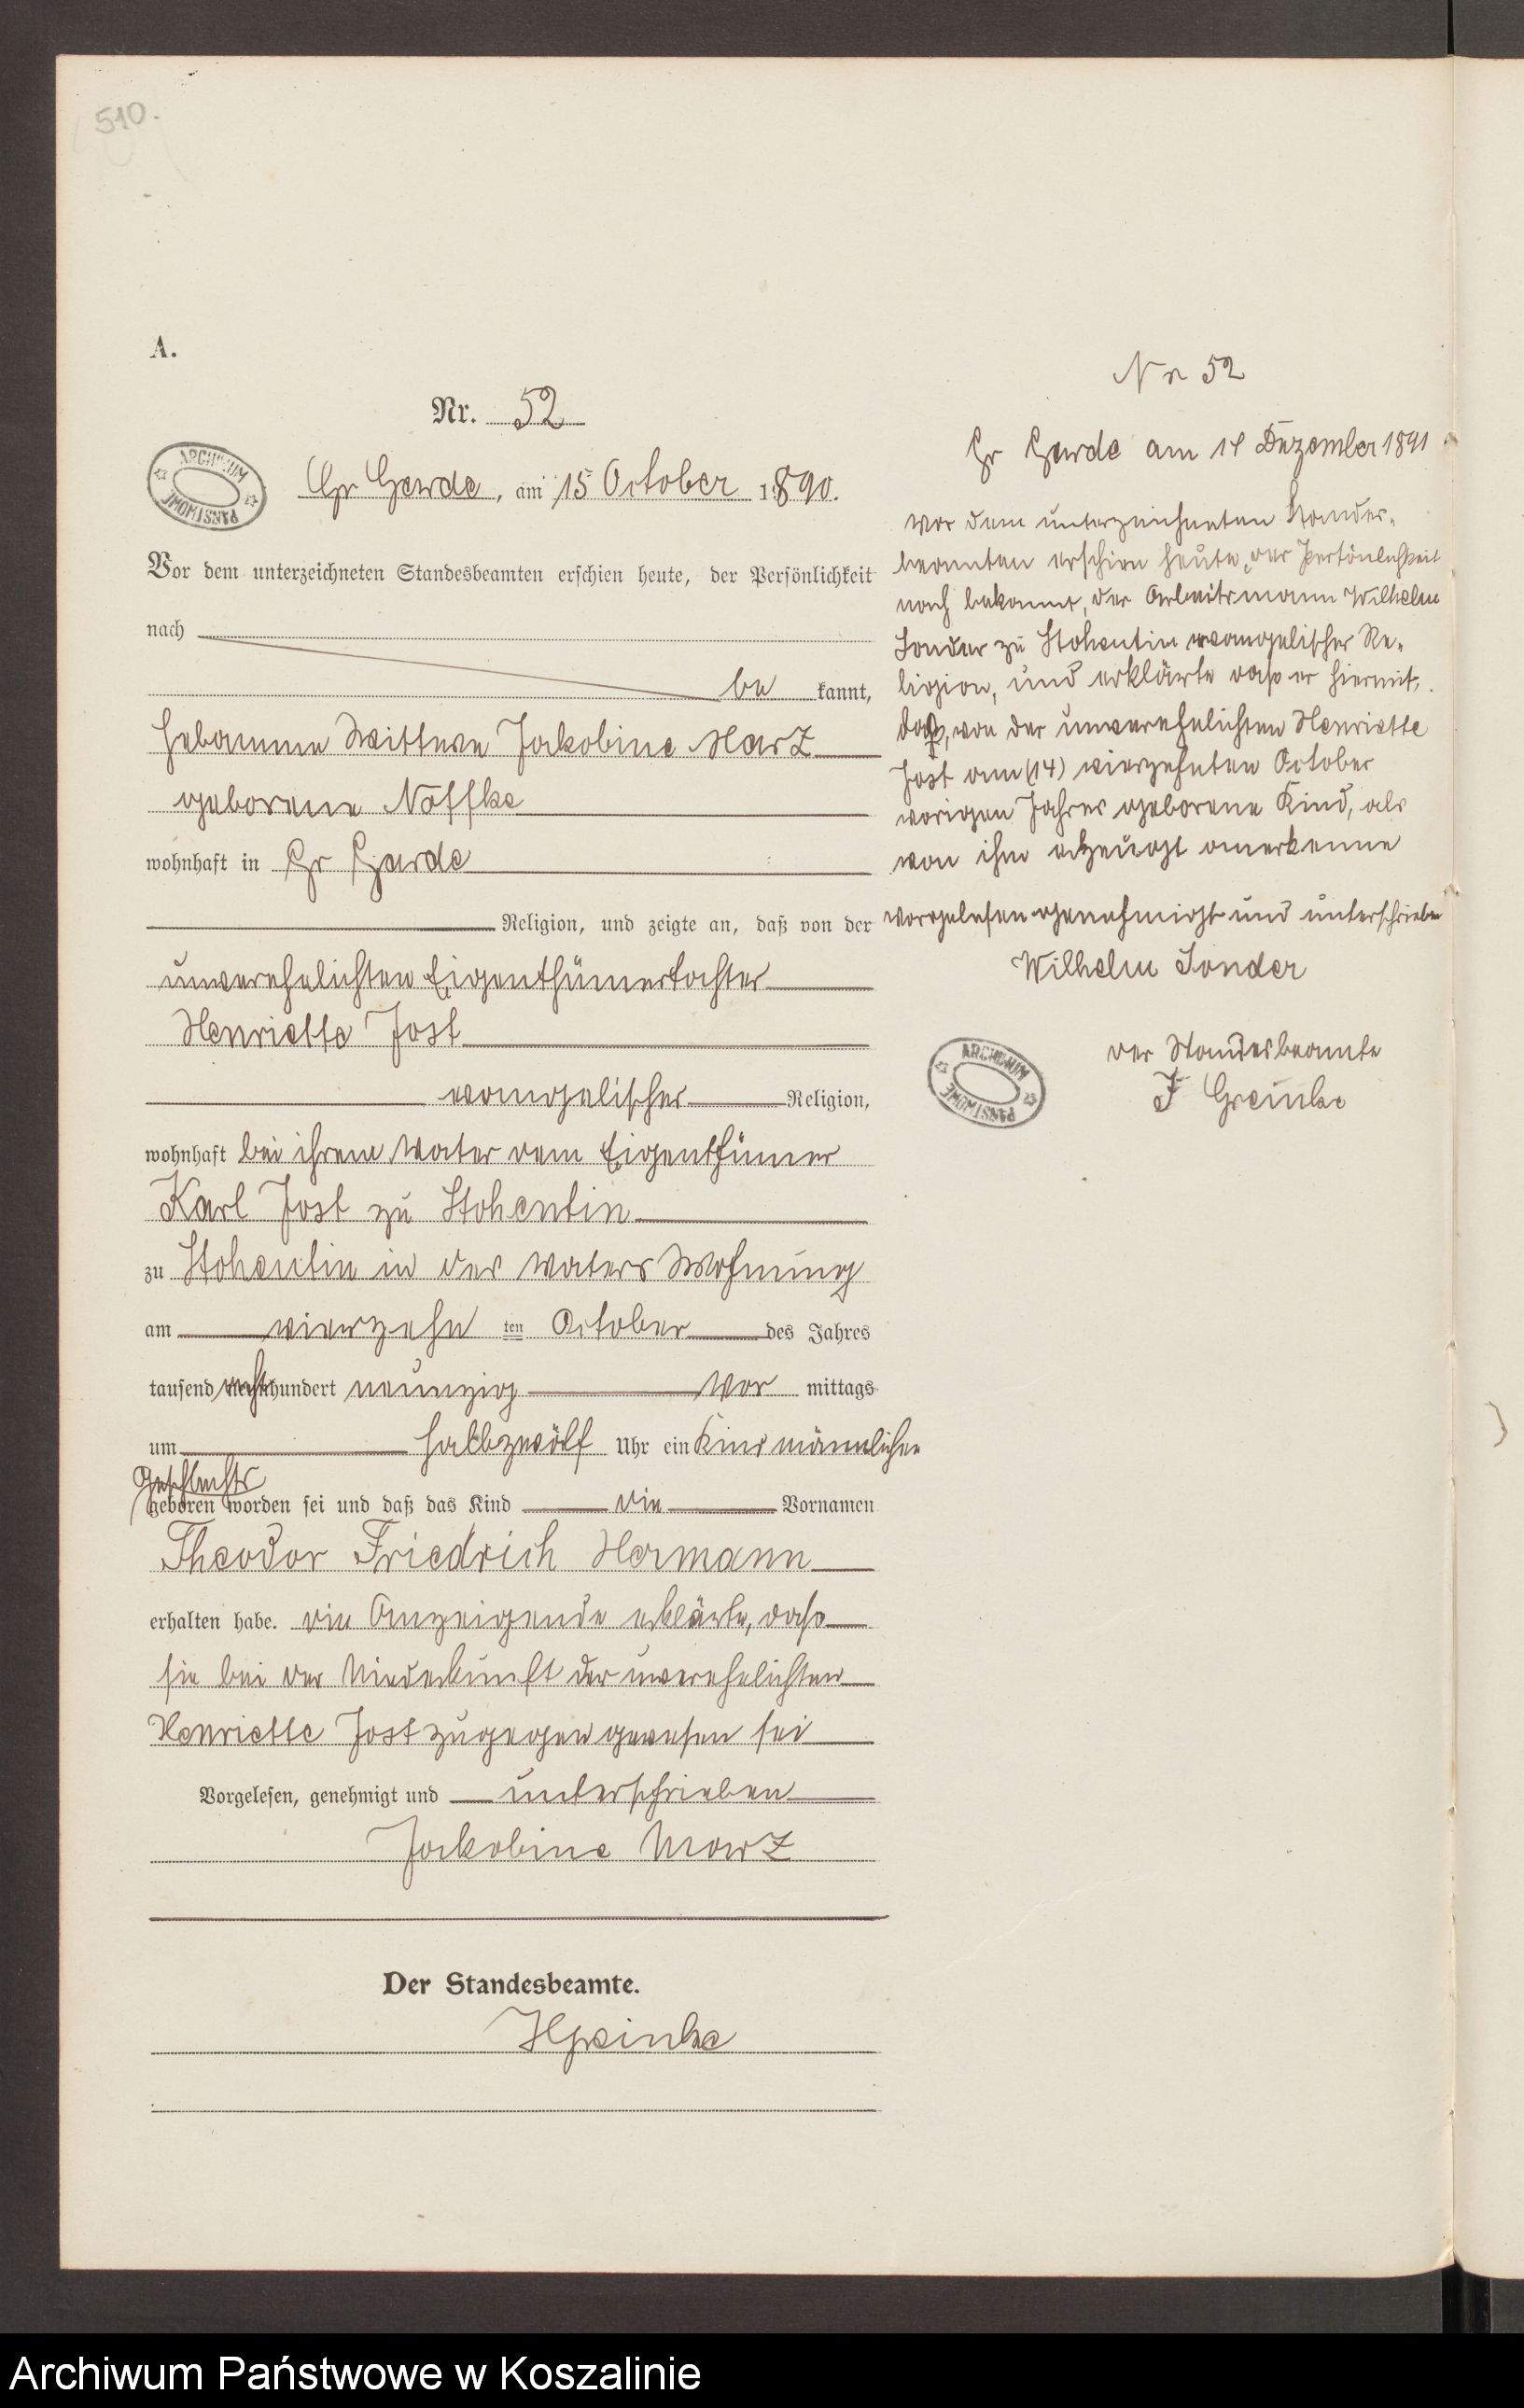 510.
A.
Nr. 52
ARCHIWUM PAŃSTWOWE
Gr Garde, am 15 October 1890.
Vor dem unterzeichneten Standesbeamten erschien heute, der Persönlichkeit
nach
be kannt,
Hebamme Wittwe Jakobine Marz
geborene Noffke
wohnhaft in Gr Garde
Religion, und zeigte an, daß von der
unverehelichten Eigenthümertochter
Henriette Jost
evangelischer Religion,
wohnhaft bei ihrem Vater dem Eigenthümer
Karl Jost zu Stohentin
zu Stohentin in des Vaters Wohnung
am vierzehn ten October des Jahres
tausend acht hundert neunzig Vor mittags
um halbzwölf Uhr ein Kind männlichen
Geschlechts
geboren worden sei und daß das Kind die Vornamen
Theodor Friedrich Hermann
erhalten habe. die Anzeigende erklärte, dass
sie bei der Niederkunft der unverehelichten
Henriette Jost zugegen gewesen sei
Vorgelesen, genehmigt und unterschrieben
Jakobine Marz
Der Standesbeamte.
Greinke
Nr 52
Gr Garde am 14 Dezember 1891
vor dem unterzeichneten Standes-
beamten erschien heute, der Persönlichkeit
nach bekannt, der Arbeitsmann Wilhelm
Sonder zu Stohentin evangelischer Re-
ligion, und erklärte daß er hiermit,
das, von der unverehelichten Henriette
Jost am (14) vierzehnten October
vorigen Jahres geborene Kind, als
von ihm erzeugt anerkenne
vorgelesen genehmigt und unterschrieben
Wilhelm Sonder
ARCHIWUM PAŃSTWOWE
der Standesbeamte
F Greinke
Archiwum Państwowe w Koszalinie